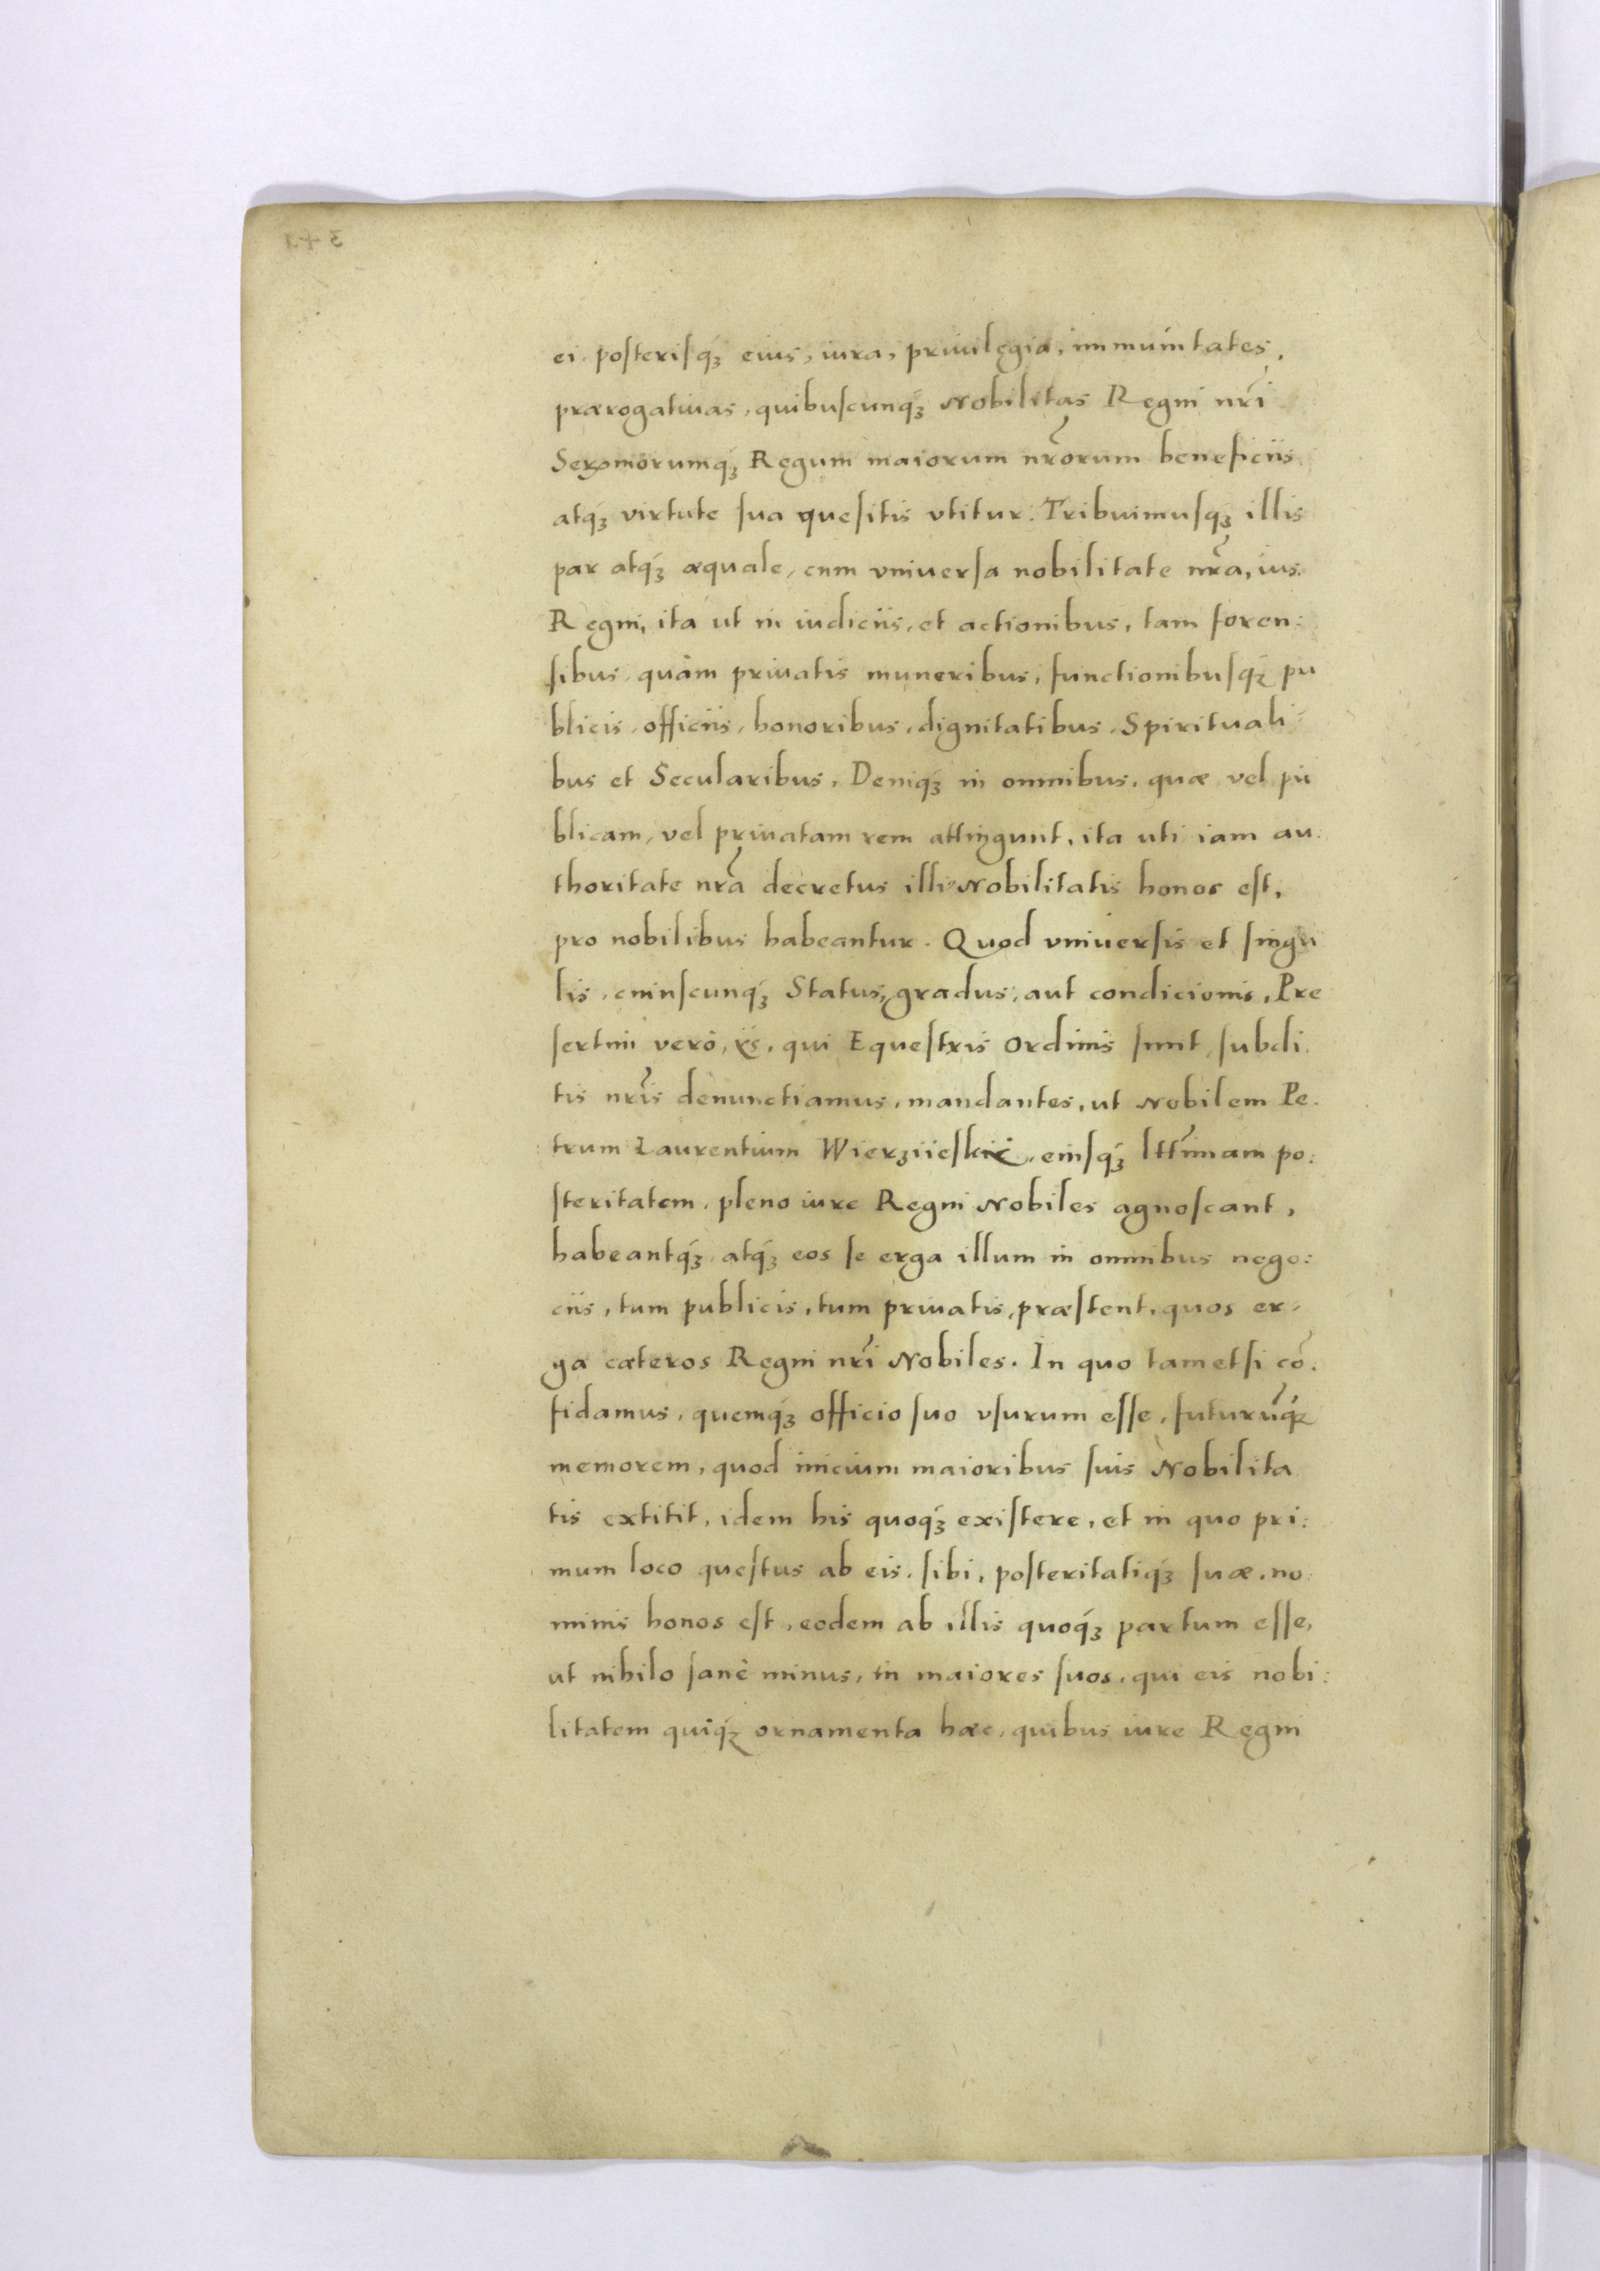 ei, posterisq́ꝫ eius, iura, priuilegia, immunitates,
prærogatiuas, quibuscunq́ꝫ Nobilitas Regni nr̃i
Serꝫmorumq́ꝫ Regum maiorum nr̃orum beneficiis
atq́ꝫ virtute sua quesitis vtitur. Tribuimusq́ꝫ illis
par atq́ꝫ æquale, cum vniuersa nobilitate nr̃a, ius
Regni, ita ut in iudiciis, et actionibus, tam foren:
sibus, quàm priuatis muneribus, functionibusq́ꝫ pu
blicis, officiis, honoribus, dignitatibus, Spirituali
bus et Secularibus, Deniq́ꝫ in omnibus, quæ vel pu
blicam, vel priuatam rem attingunt, ita uti iam au:
thoritate nr̃a decretus illi Nobilitatis honos est,
pro nobilibus habeantur. Quod vniuersis et singu
lis, cuiuscunq́ꝫ Status, gradus, aut condicionis, Pre
sertim verò, iis, qui Equestris Ordinis sunt, subdi
tis nr̃is denunctiamus, mandantes, ut Nobilem Pe.
trum Laurentium eiusq́ꝫ lttimam po:
steritatem, pleno iure Regni Nobiles agnoscant,
habeantq́ꝫ, atq́ꝫ eos se erga illum in omnibus nego:
ciis, tum publicis, tum priuatis, præstent, quos er,
ga cæteros Regni nr̃i Nobiles. In quo tametsi cõ.
fidamus, quemq́ꝫ officio suo vsurum esse, futurũq́ꝫ
memorem, quod inicium maioribus suis Nobilita
tis extitit, idem his quoq́ꝫ existere, et in quo pri:
mum loco questus ab eis, sibi, posteritatiq́ꝫ suæ, no:
minis honos est, eodem ab illis quoq́ꝫ partum esse,
ut nihilo sanè minus, in maiores suos, qui eis nobi:
litatem quiq́ꝫ ornamenta hæc, quibus iure Regni